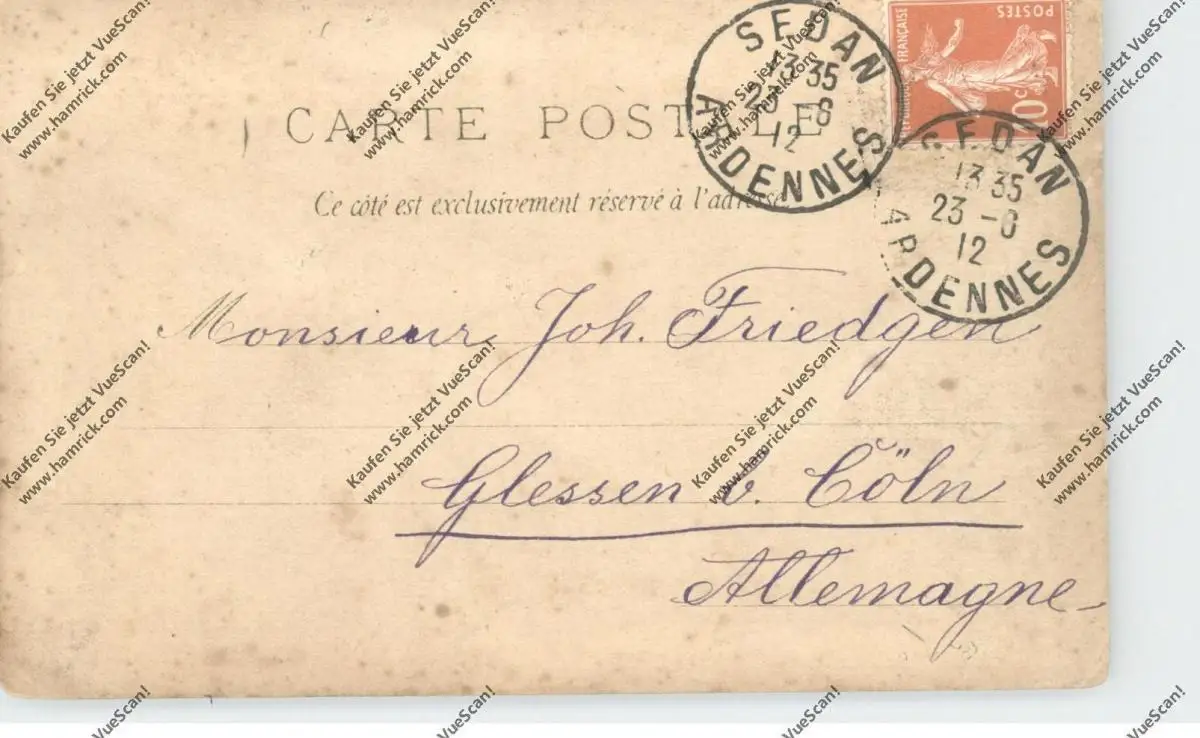 SEDAN
13 35
23 -8
12
ARDENNES
RÉPUBLIQUE FRANÇAISE
POSTES
10c
SEDAN
13 35
23 -8
12
ARDENNES
CARTE POSTALE
Ce côté est exclusivement réservé à l'adresse.
Monsieur Joh. Friedgen
Glessen b. Cöln
Allemagne
Kaufen Sie jetzt VueScan!
www.hamrick.com
Kaufen Sie jetzt VueScan!
www.hamrick.com
Kaufen Sie jetzt VueScan!
www.hamrick.com
Kaufen Sie jetzt VueScan!
www.hamrick.com
Kaufen Sie jetzt VueScan!
www.hamrick.com
Kaufen Sie jetzt VueScan!
www.hamrick.com
Kaufen Sie jetzt VueScan!
www.hamrick.com
Kaufen Sie jetzt VueScan!
www.hamrick.com
VueScan!
VueScan!
VueScan!
VueScan!